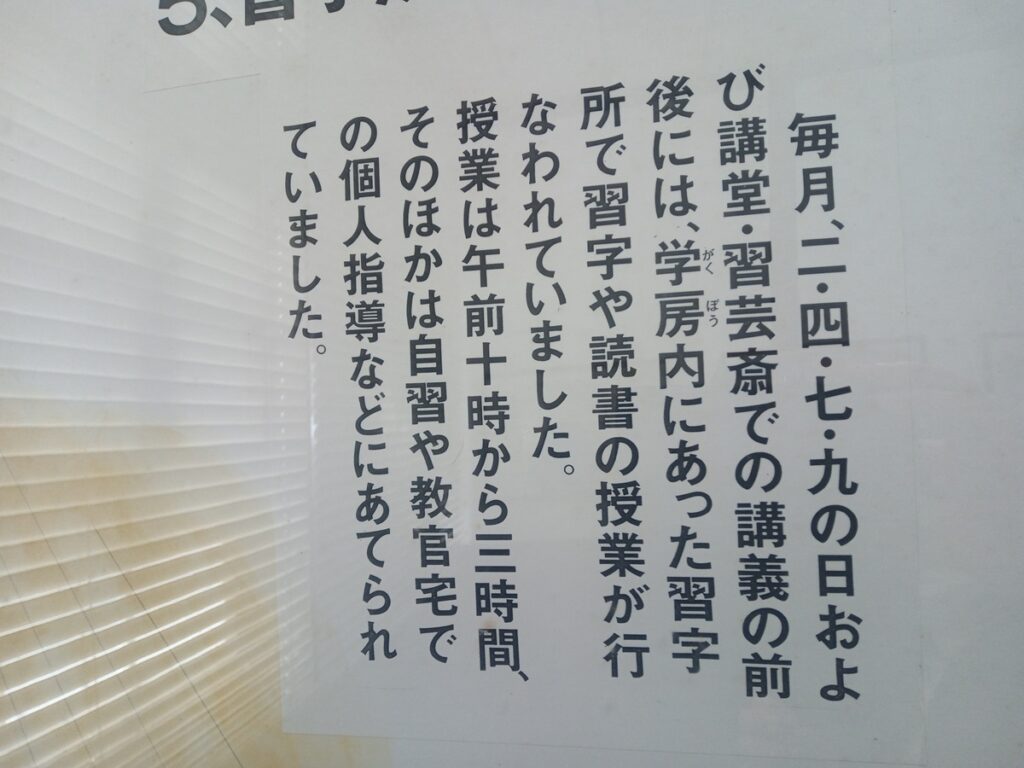 5、習字
毎月、二・四・七・九の日およ
び講堂・習芸斎での講義の前
後には、学房内にあった習字
がくぼう
所で習字や読書の授業が行
なわれていました。
授業は午前十時から三時間、
そのほかは自習や教官宅で
の個人指導などにあてられ
ていました。